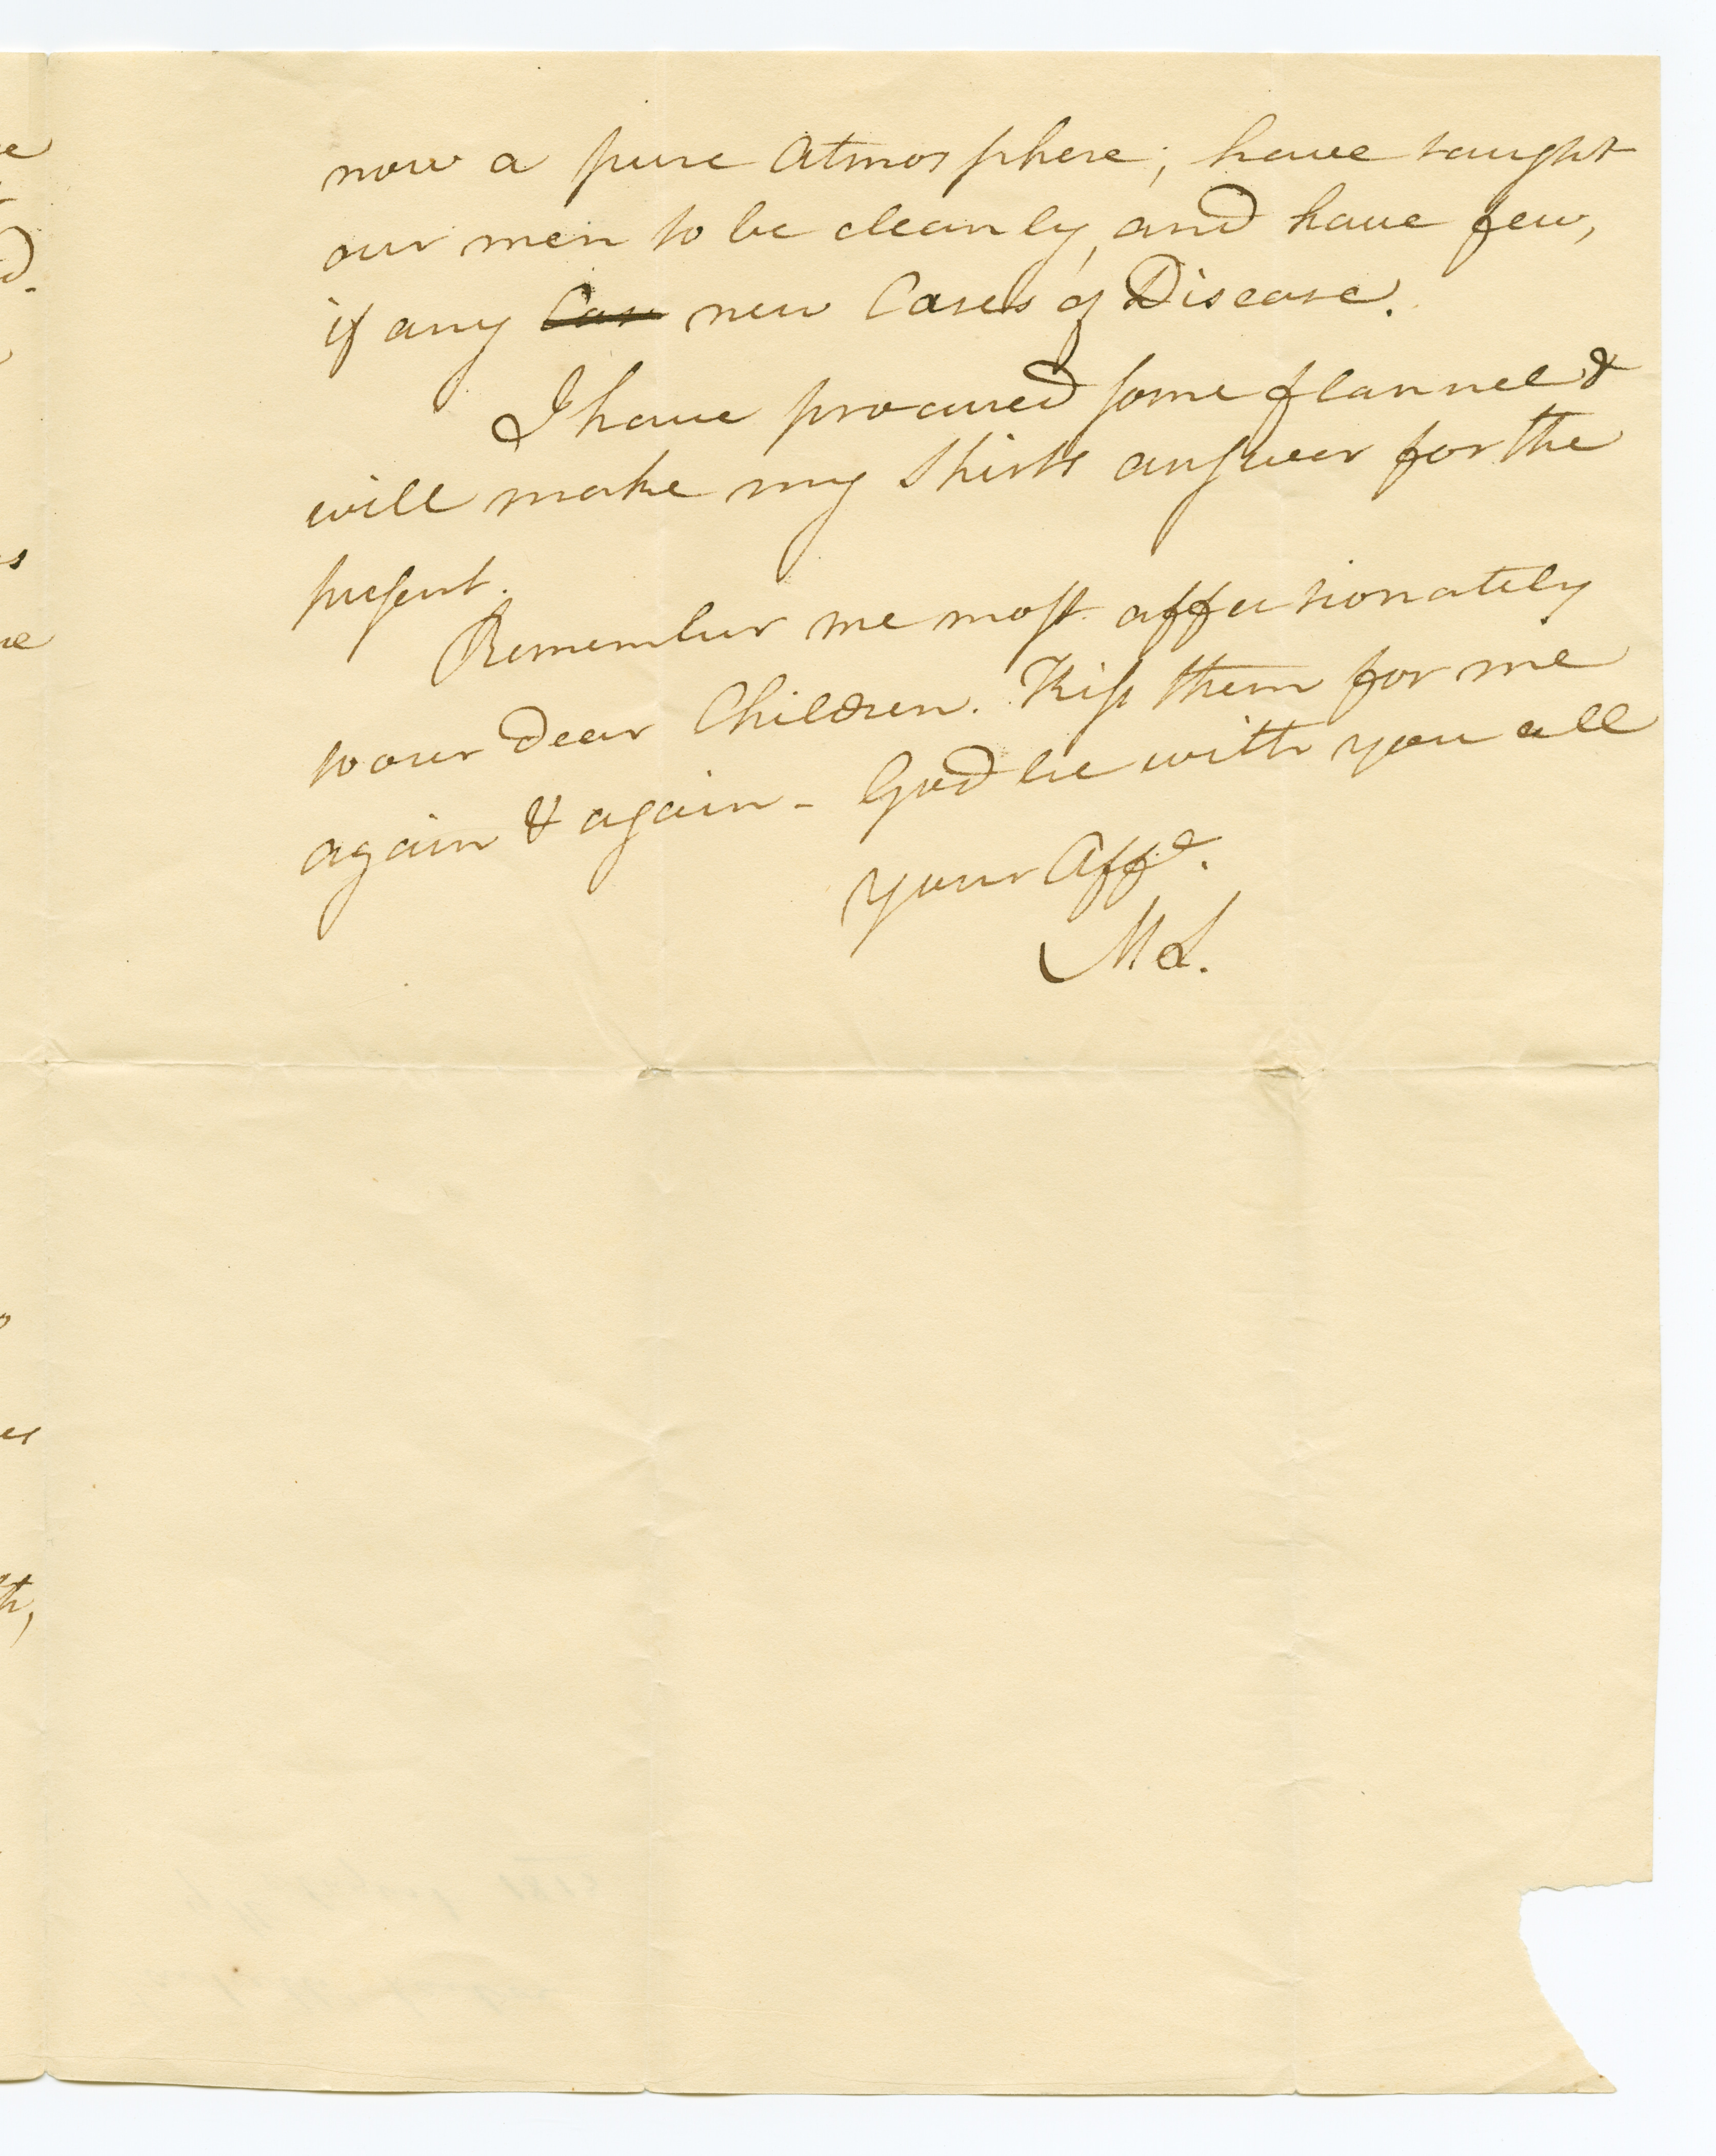 now a pure Atmosphere; have taught
our men to be cleanly, and have few,
if any Cas new Cases of Disease.
I have procured some flannel &
will make my Shirts answer for the
present.
Remember me most affectionately
to our Dear Children. Kiss them for me
again & again - God be with you all
your Affe.
ML.